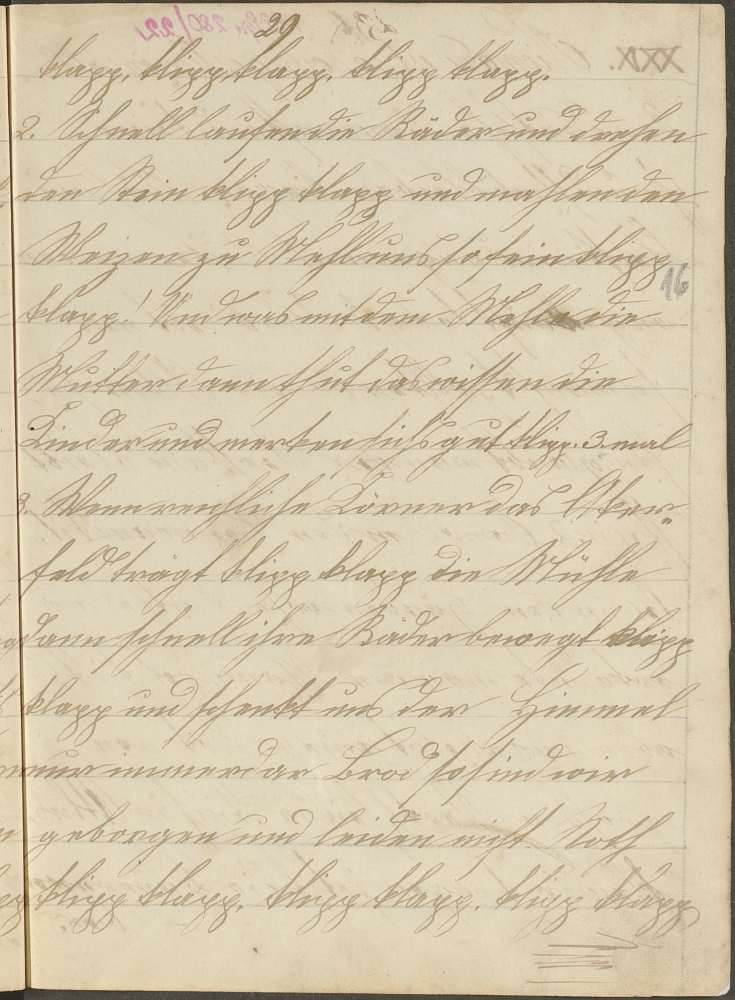 29
klapp, klipp klapp, klipp klapp.
2. Schnell laufen die Räder und drehen
den Stein klipp klapp und mahlen den
Weizen zu Mehl uns so fein klipp
klapp! Und was mit dem Mehle die
16
Mutter dann thut das wissen die
Kinder und merken sichs gut klipp. 3. mal
3. Wenn reichliche Körner das Aker„
feld trägt klipp klapp die Mühle
dann schnell ihre Räder bewegt klipp
klapp und schenkt uns der Himmel
nur immerdar Brod so sind wir
geborgen und leiden nicht Noth
klipp klapp, klipp klapp, klipp klapp